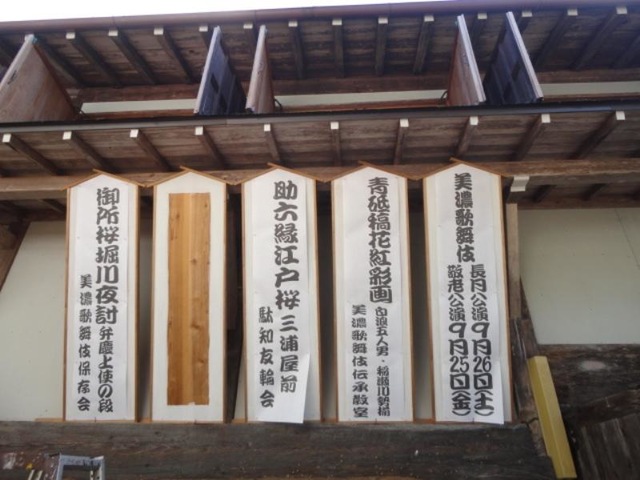 美濃歌舞伎
長月公演9月26日(土)
敬老公演9月25日(金)
青砥稿花紅彩画
白浪五人男・稲瀬川勢揃
美濃歌舞伎伝承教室
助六縁江戸桜三浦屋前
駄知友輪会
御所桜堀川夜討弁慶上使の段
美濃歌舞伎保存会